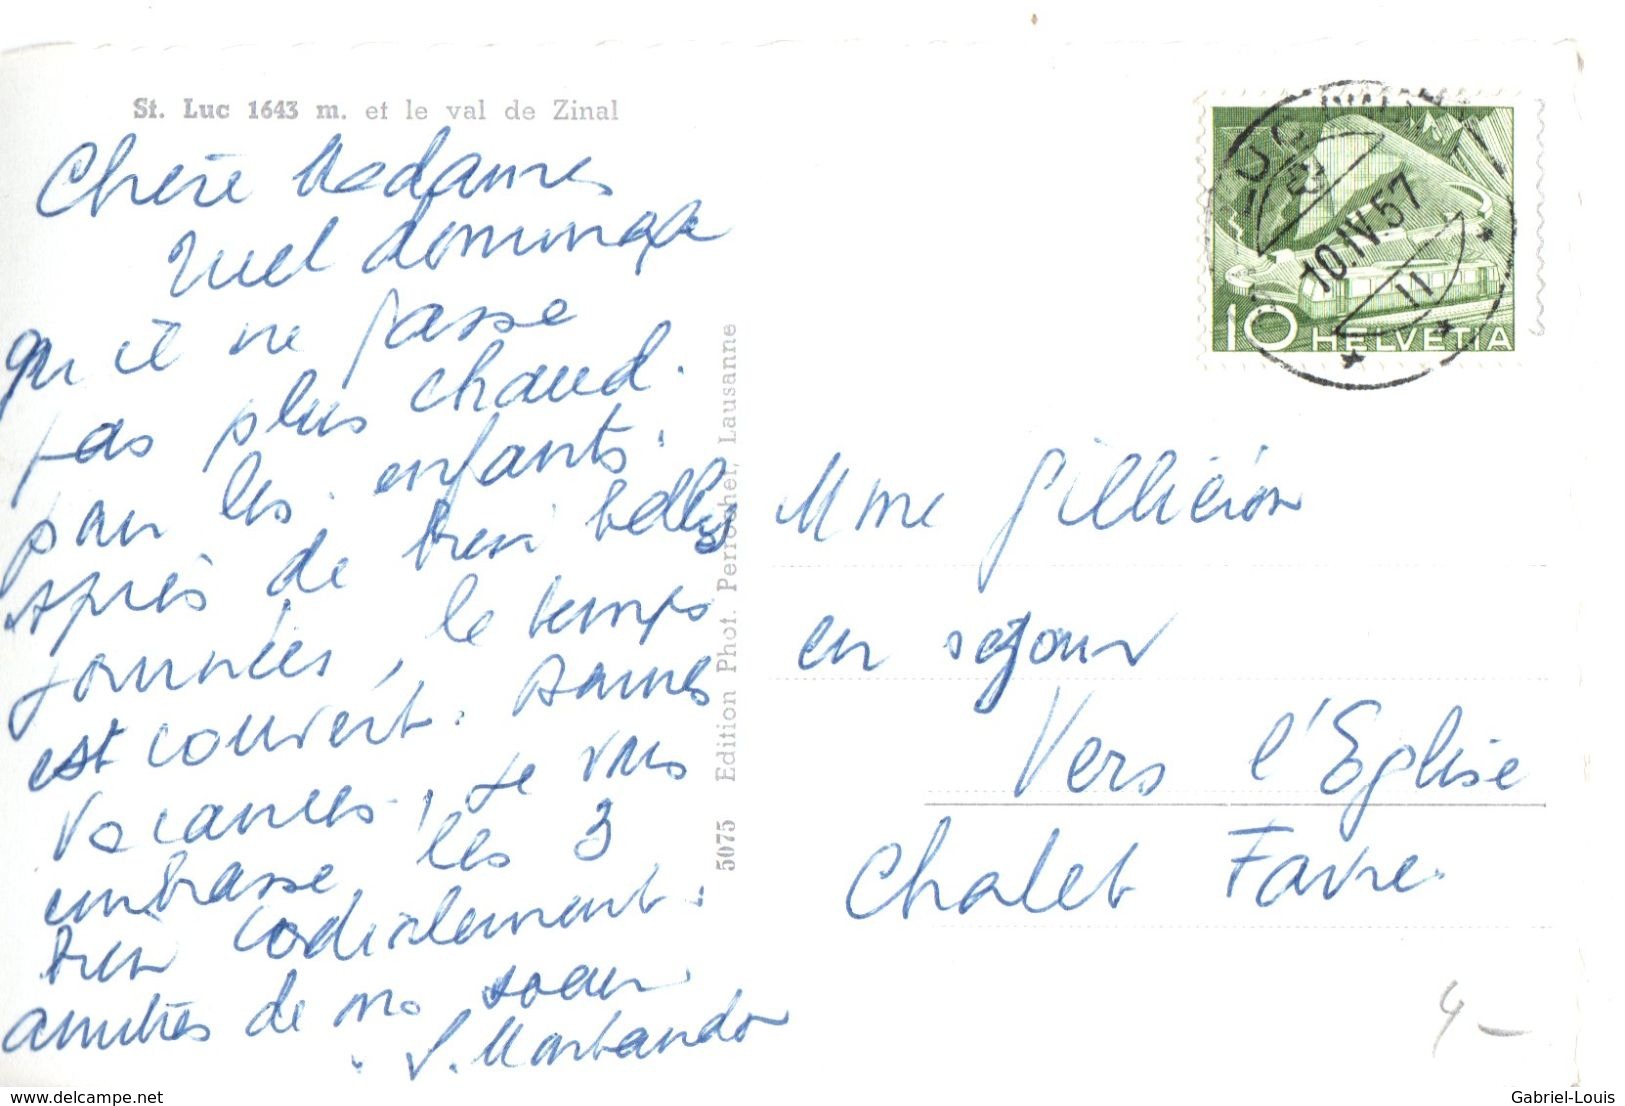 St. Luc 1643 m. et le val de Zinal
Chère Madames
quel dommage
qu'il ne fasse
pas plus chaud.
pour les enfants.
après de bien belles
journées, le temps
est couvert. Bonnes
vacances, je vous
embrasse les 3
bien cordialement.
amitiés de ma soeur
5075 Edition Phot. Perrochet, Lausanne
LUC
10.IV.57
10 HELVETIA
Mme Gilliéron
en séjour
Vers l'Eglise
Chalet Favre
4 –
www.delcampe.net
Gabriel-Louis